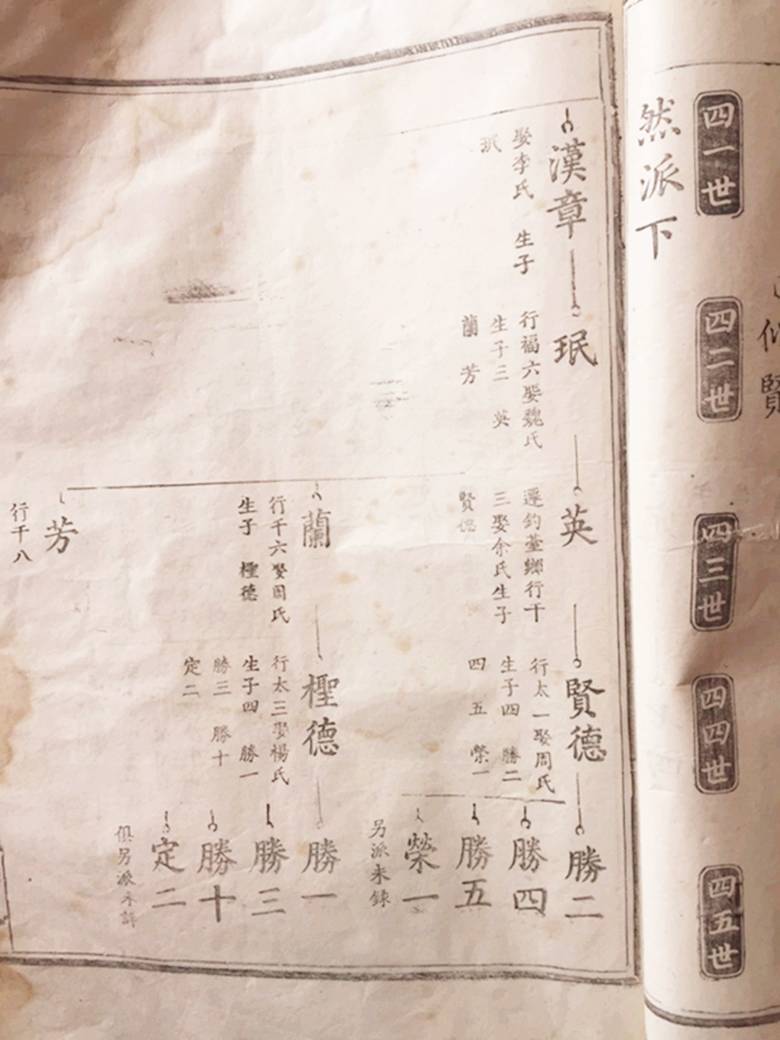 賢
四一世
四二世
四三世
四四世
四五世
然派下
漢章
娶李氏 生子
珉
珉
行福六娶魏氏
生子三 英
蘭 芳
英
遷釣臺鄉行千
三娶余氏生子
賢德
賢德
行太一娶周氏
生子四 勝二
四 五 榮一
勝二
勝四
勝五
榮一
另派未錄
蘭
行千六娶周氏
生子 檉德
檉德
行太三娶楊氏
生子四 勝一
勝三 勝十
定二
勝一
勝三
勝十
定二
俱另派未詳
芳
行千八